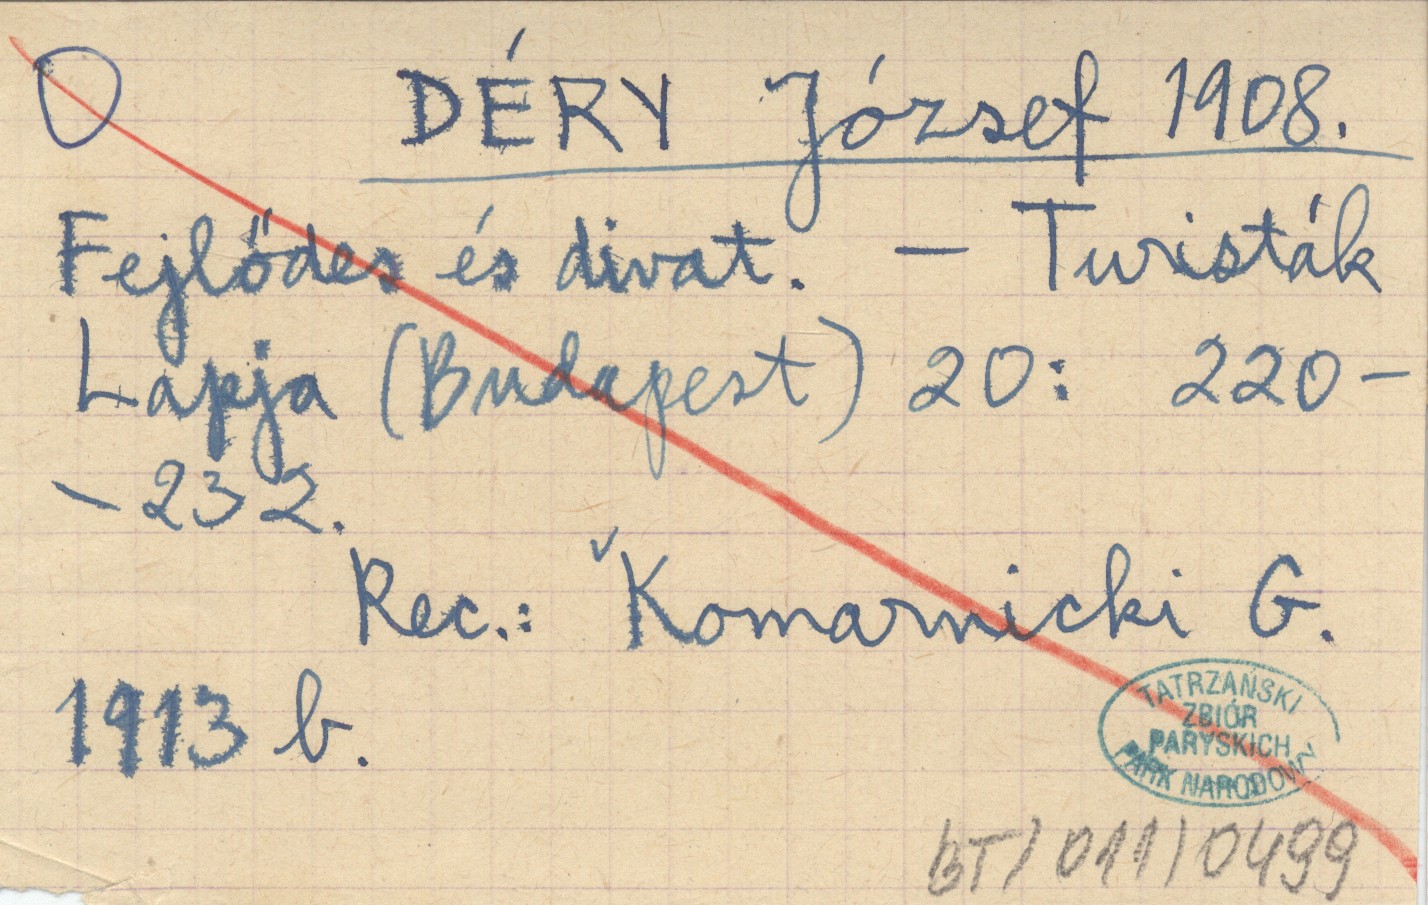 DÉRY József 1908.
Fejlődes és divat. — Turisták
Lapja (Budapest) 20: 220-
-232.
Rec.: Komarnicki G.
1913 b.
TATRZAŃSKI
ZBIÓR
PARYSKICH
PARK NARODOWY
BT/011/0499